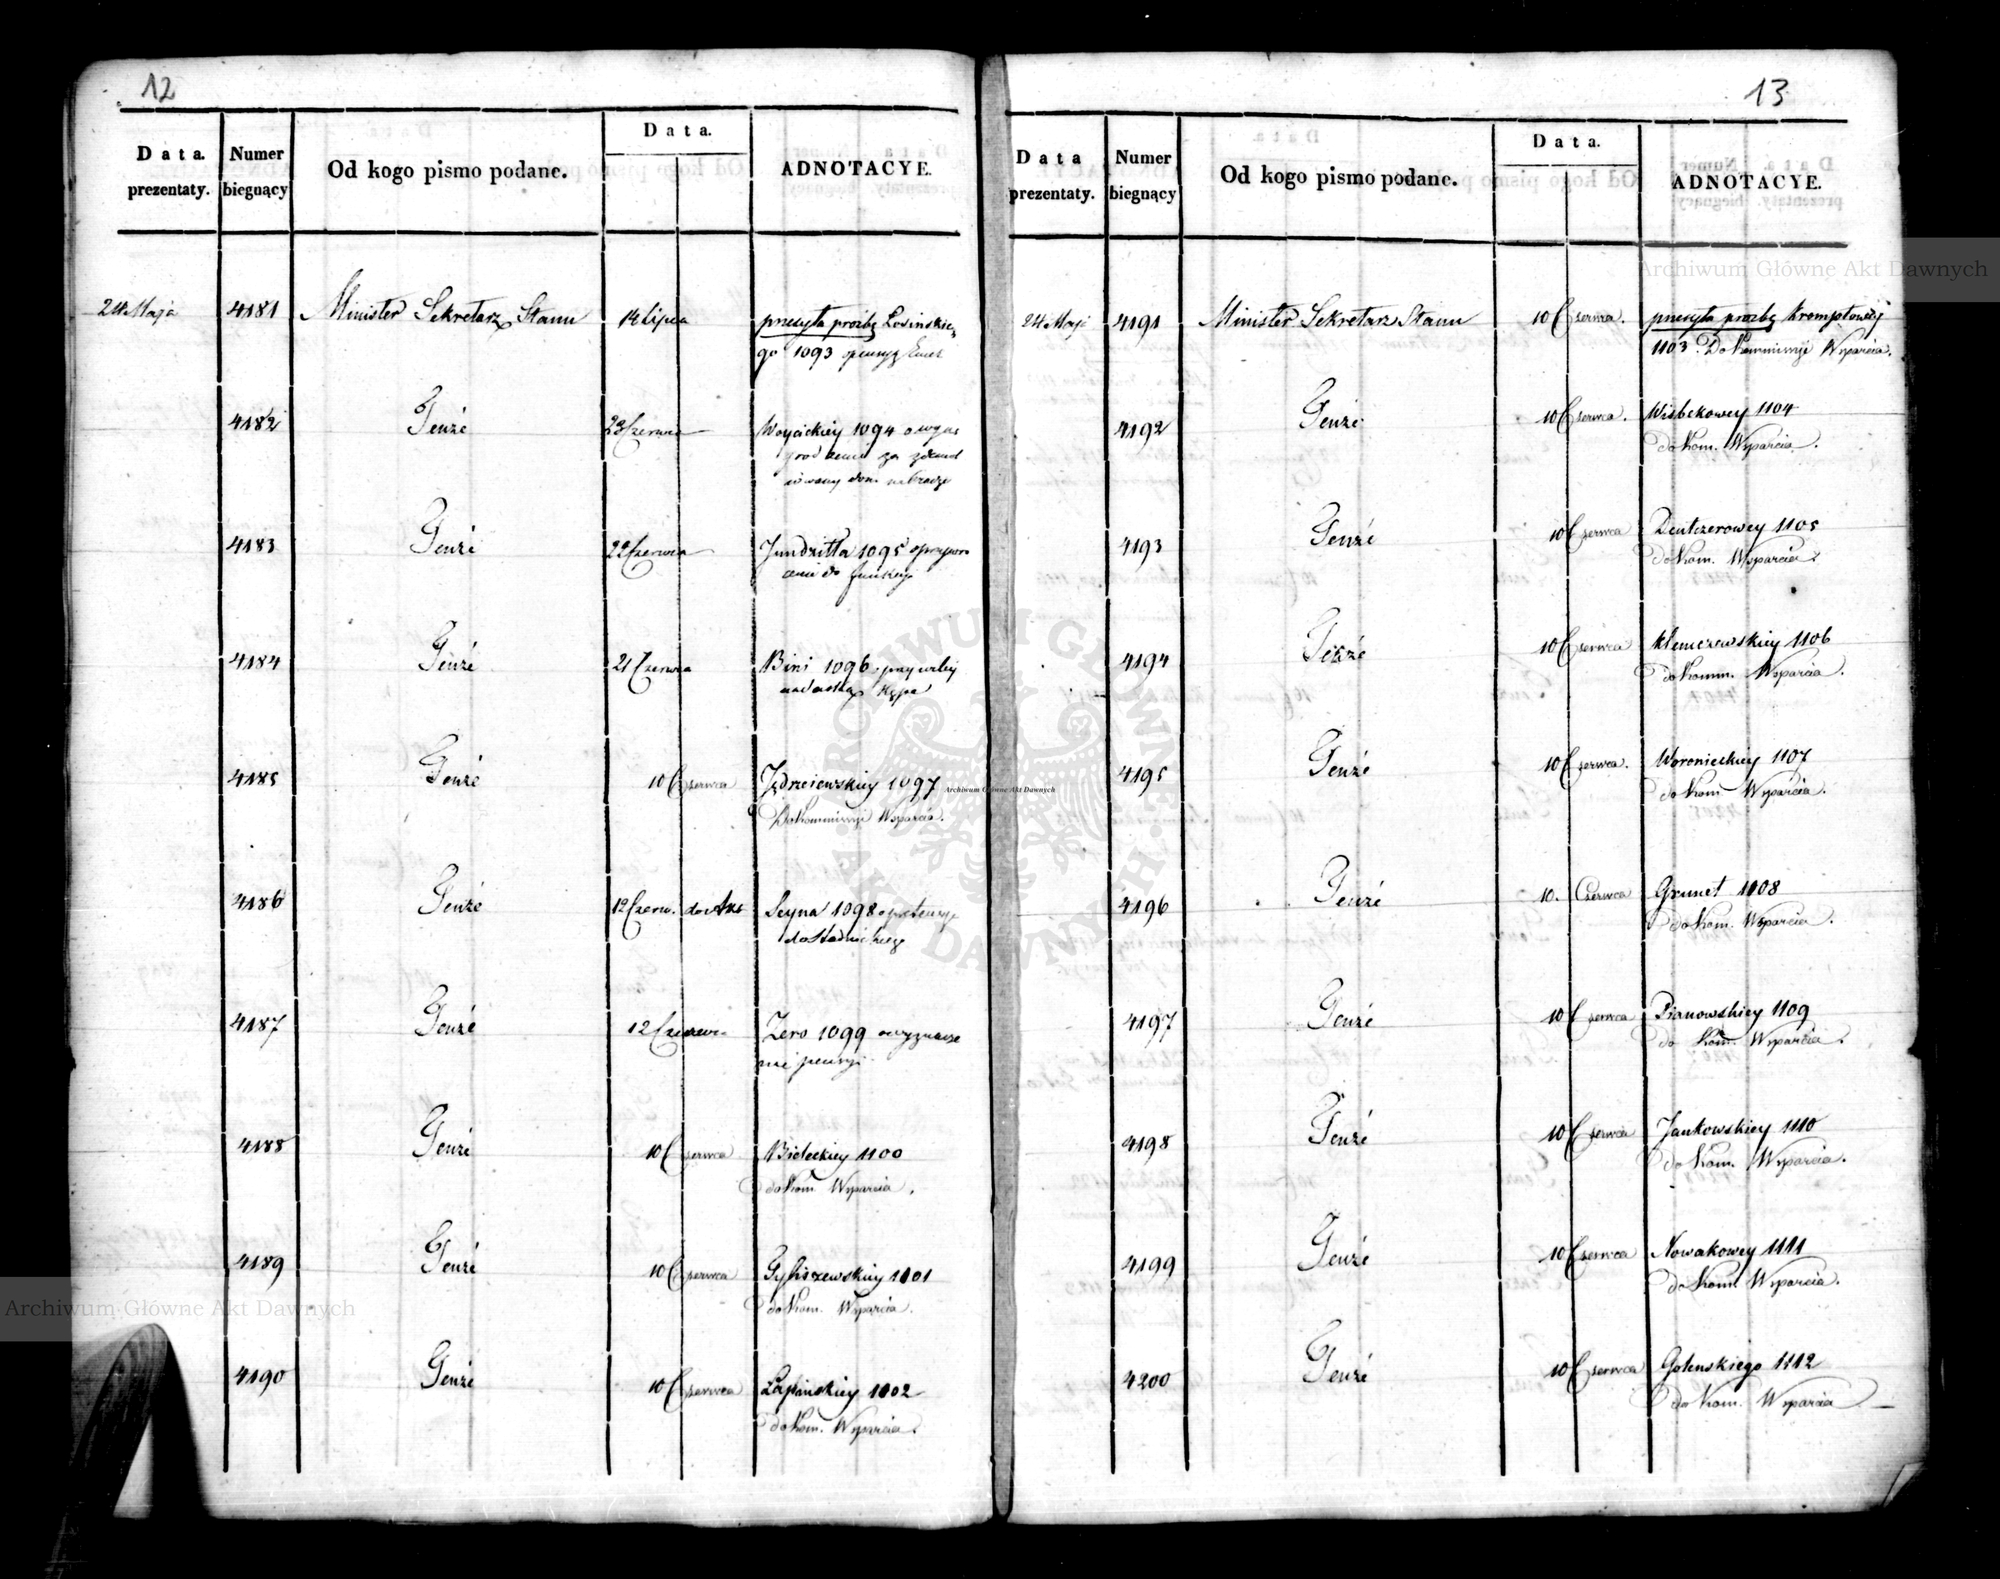 12
Data. prezentaty. Numer biegnący Od kogo pismo podane. Data. ADNOTACYE.
24 Maja 4181 Minister Sekretarz Stanu 14 Lipca przesyła prozbę Losinskie
go 1093
4182 Tenże 23 Czerwca Woycickiey 1094
4183 Tenże 22 Czerwca Jundziłła 1095
do funkcyi
4184 Tenże 21 Czerwca Bini 1096
4185 Tenże 10 Czerwca Jędrzeiewskiey 1097
Do Kommissyi Wsparcia.
4186 Tenże 12 Czerw. do Akt Seyna 1098
4187 Tenże 12 Czerwca Zero 1099 o wyznacze
nie pensyi
4188 Tenże 10 Czerwca Bieleckiey 1100
do Kom. Wsparcia.
4189 Tenże 10 Czerwca 1101
do Kom. Wsparcia.
4190 Tenże 10 Czerwca Łapinskiey 1102
do Kom. Wsparcia.
13
Data prezentaty. Numer biegnący Od kogo pismo podane. Data. ADNOTACYE.
24 Maja 4191 Minister Sekretarz Stanu 10 Czerwca. przesyła prozbę
1103. Do Kommissyi Wsparcia.
4192 Tenże 10 Czerwca. Wisbekowey 1104
do Kom. Wsparcia.
4193 Tenże 10 Czerwca Deutzerowey 1105
do Kom. Wsparcia.
4194 Tenże 10 Czerwca Klemczewskiey 1106
do Komm. Wsparcia.
4195 Tenże 10 Czerwca. Woronieckiey 1107
do Kom Wsparcia.
4196 Tenże 10. Czerwca Grunet 1108
do Kom. Wsparcia.
4197 Tenże 10 Czerwca Pianowskiey 1109
do Kom. Wsparcia.
4198 Tenże 10 Czerwca Jankowskiey 1110
do Kom. Wsparcia.
4199 Tenże 10 Czerwca Nowakowey 1111
do Kom. Wsparcia.
4200 Tenże 10 Czerwca Golenskiego 1112
do Kom. Wsparcia
Archiwum Główne Akt Dawnych
Archiwum Główne Akt Dawnych
Archiwum Główne Akt Dawnych
ARCHIWUM GŁÓWNE AKT DAWNYCH